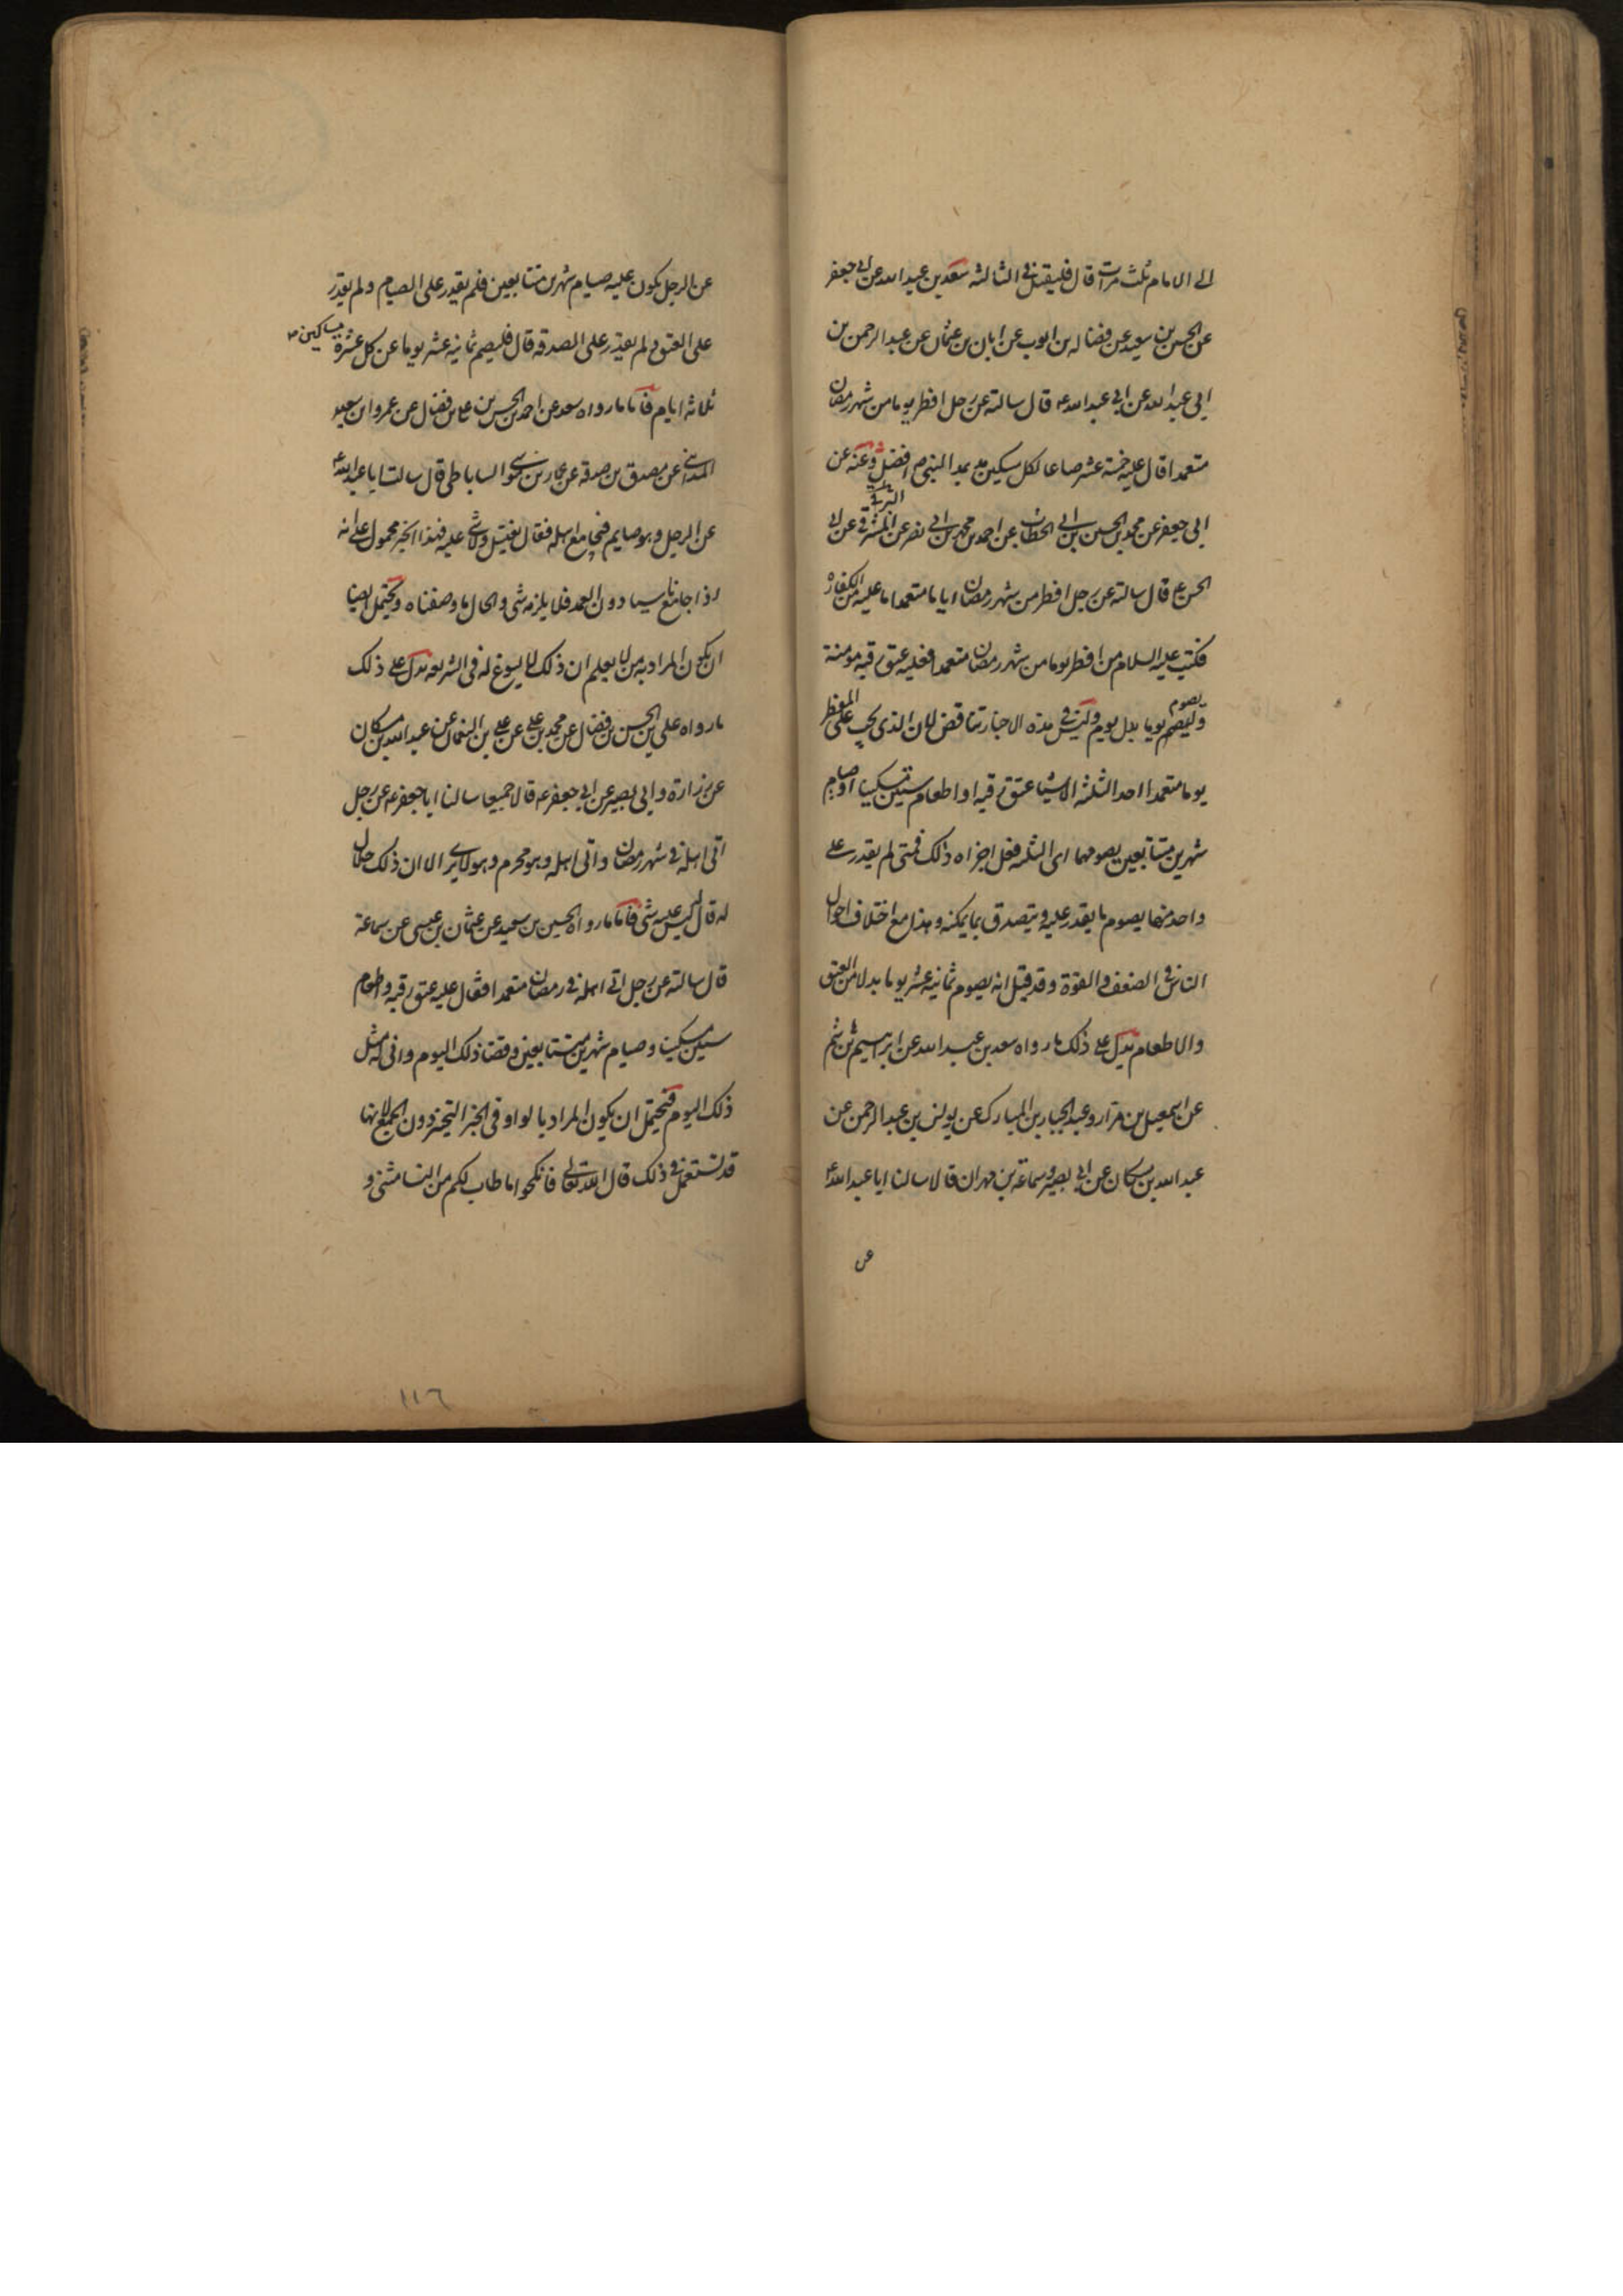 الى الامام ثلث مرات قال فليقتل فى الثالثه سعد بن عبد الله عن ابى جعفر
عن الحسين بن سعيد عن فضاله بن ايوب عن ابان بن عثمان عن عبد الرحمن بن
ابى عبد الله عن ابى عبد الله ع قال سالته عن رجل افطر يوما من شهر رمضان
متعمدا قال عليه خمسة عشر صاعا لكل مسكين مد بمد النبى ص افضل وعنه عن
ابى جعفر عن محمد بن الحسين بن ابى الخطاب عن احمد بن محمد بن ابى نصر عن المشرقى عن ابى
الحسن ع قال سالته عن رجل افطر من شهر رمضان اياما متعمدا ما عليه من الكفارة
فكتب عليه السلام من افطر يوما من شهر رمضان متعمدا فعليه عتق رقبه مومنة
ويصوم
وليصم يوما بدل يوم وليس فى هذه الاخبار تناقض لان الذى يجب على المفطر
يوما متعمدا احد الثلثه الاشيا عتق رقبه او اطعام ستين مسكينا او صيام
شهرين متتابعين يصومهما اى الثلثه فعل اجزاه ذلك فمتى لم يقدر على
واحد منها يصوم ما يقدر عليه ويتصدق بما يمكنه وهذا مع اختلاف احوال
الناس فى الضعف والقوة وقد قيل انه يصوم ثمانيه عشر يوما بدلا من العتق
والاطعام يدل على ذلك ما رواه سعد بن عبد الله عن ابراهيم بن هاشم
عن اسمعيل بن مرار وعبد الجبار بن المبارك عن يونس بن عبد الرحمن عن
عبد الله بن مسكان عن ابى بصير وسماعة بن مهران قالا سالنا ابا عبد الله ع
عن
عن الرجل يكون عليه صيام شهرين متتابعين فلم يقدر على الصيام ولم يقدر
على العتق ولم يقدر على الصدقه قال فليصم ثمانيه عشر يوما عن كل عشرة مساكين
ثلاثه ايام فاما ما رواه سعد عن احمد بن الحسن بن على بن فضال عن عمرو بن سعيد
المداينى عن مصدق بن صدقه عن عمار بن موسى الساباطى قال سالت ابا عبد الله ع
عن الرجل وهو صايم فيجامع اهله فقال يغتسل ولا شى عليه فهذا الخبر محمول على انه
اذا جامع ناسيا دون العمد فلا يلزمه شى والحال ما وصفناه ويحتمل ايضا
ان يكون المراد به من لا يعلم ان ذلك لا يسوغ له فى الشريعه يدل على ذلك
ما رواه على بن الحسن بن فضال عن محمد بن على عن على بن النعمان عن عبد الله بن مسكان
عن زرارة وابى بصير عن ابى جعفر ع قالا جميعا سالنا ابا جعفر ع عن رجل
اتى اهله فى شهر رمضان واتى اهله وهو محرم وهو لا يرى الا ان ذلك حلال
له قال ليس عليه شى فاما ما رواه الحسين بن سعيد عن عثمان بن عيسى عن سماعة
قال سالته عن رجل اتى اهله فى رمضان متعمدا فقال عليه عتق رقبه واطعام
ستين مسكينا وصيام شهرين متتابعين وقضا ذلك اليوم وانى له مثل
ذلك اليوم فيحتمل ان يكون المراد بالواو فى الخبر التخيير دون الجمع لانها
قد تستعمل فى ذلك قال الله تعالى فانكحوا ما طاب لكم من النسا مثنى و
١١٦